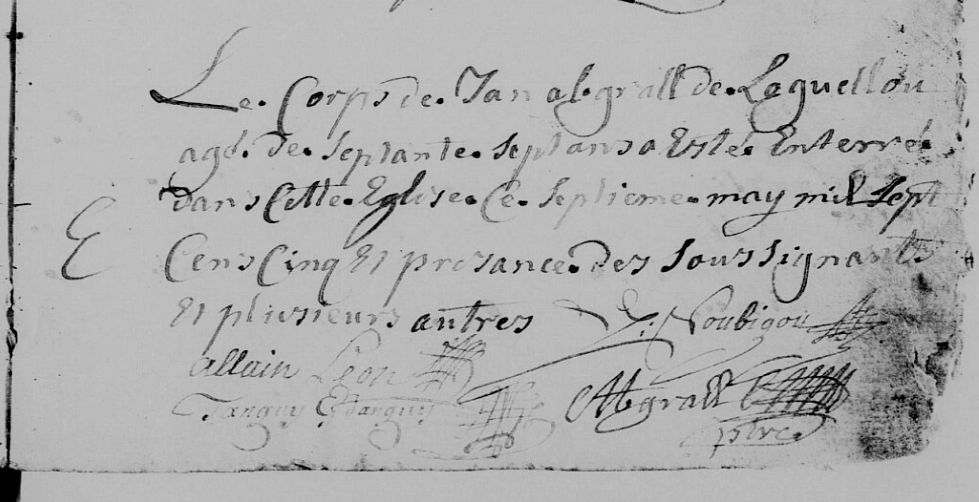 Le Corps de Jan abgrall de Laguellou
agé de septante sept ans a Esté Enterré
dans Cette Eglise Ce septieme may mil sept
E
Cens Cinq Et presance des soussignants
Et plusieurs autres Y: Noubigou
allain Leon
Tanguy Abgrall
ptre